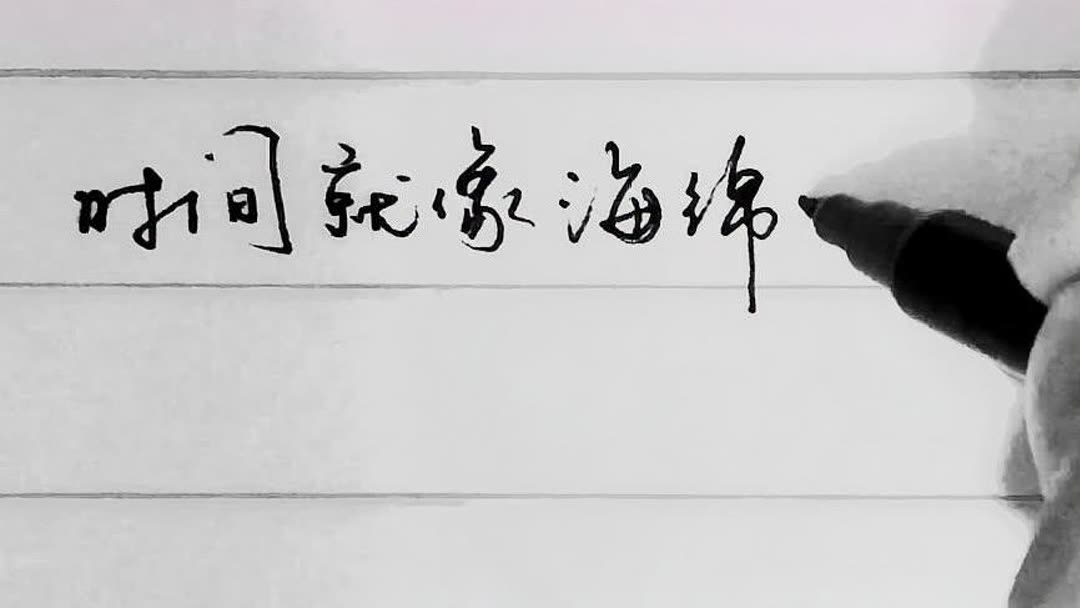 时间就像海绵